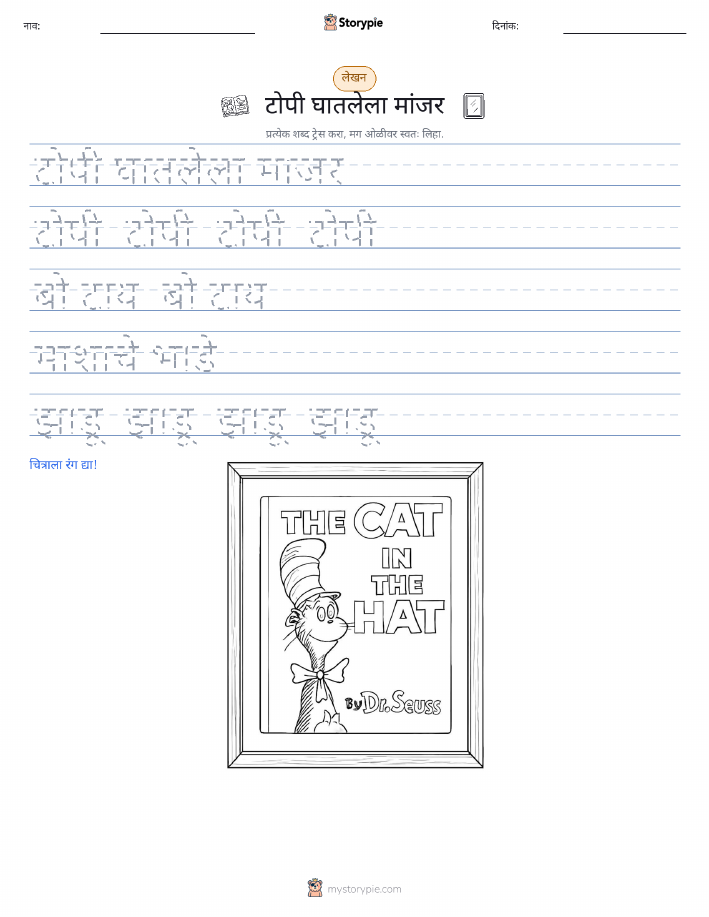 नाव:
Storypie
दिनांक:
लेखन
टोपी घातलेला मांजर
प्रत्येक शब्द ट्रेस करा, मग ओळीवर स्वतः लिहा.
टोपी घातलेला मांजर
टोपी टोपी टोपी टोपी
बो टाय बो टाय
माशाचे भांडे
झाडू झाडू झाडू झाडू
चित्राला रंग द्या!
THE CAT
IN
THE
HAT
By Dr. Seuss
mystorypie.com